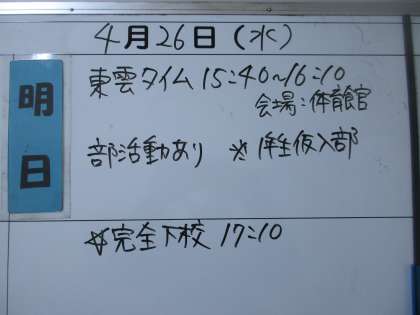 4月26日(水)
明日
東雲タイム 15:40~16:10
会場:体育館
部活動あり ※ 1年生仮入部
☆完全下校 17:10